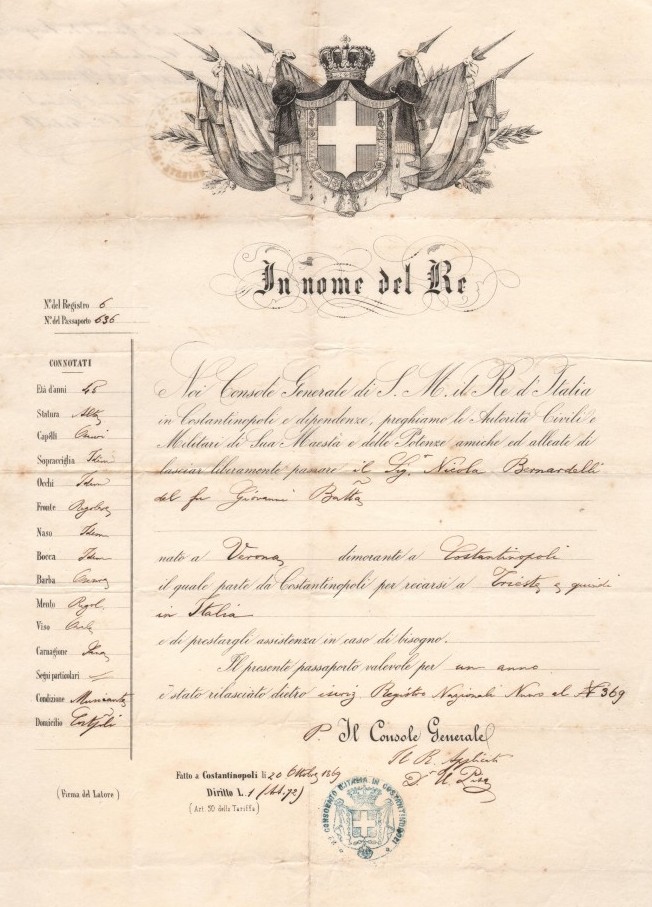 In nome del Re
Nº. del Registro 6
Nº. del Passaporto 636
CONNOTATI
Età d'anni 48
Statura Alta
Capelli
Sopracciglia Idem
Occhi Idem
Fronte Regolare
Naso Idem
Bocca Idem
Barba
Mento Regol.
Viso
Carnagione
Segni particolari
Condizione
Domicilio Costpli
(Firma del Latore)
Noi Console Generale di S. M. il Re d'Italia
in Costantinopoli e dipendenze, preghiamo le Autorità Civili e
Militari di Sua Maestà e delle Potenze amiche ed alleate di
lasciar liberamente passare il Sigr. Nicola Bernardelli
del fu Giovanni Batta
nato a Verona dimorante a Costantinopoli
il quale parte da Costantinopoli per recarsi a Trieste e quindi
in Italia
e di prestargli assistenza in caso di bisogno.
Il presente passaporto valevole per un anno
è stato rilasciato dietro iscriz. Registro Nazionali Nuovo al Nº 369
P. Il Console Generale
Il R. Applicato
Fatto a Costantinopoli li 20 Ottobre 1869
Diritto L. 1 (Art. 72)
(Art. 50 della Tariffa)
CONSOLATO D'ITALIA IN COSTANTINOPOLI